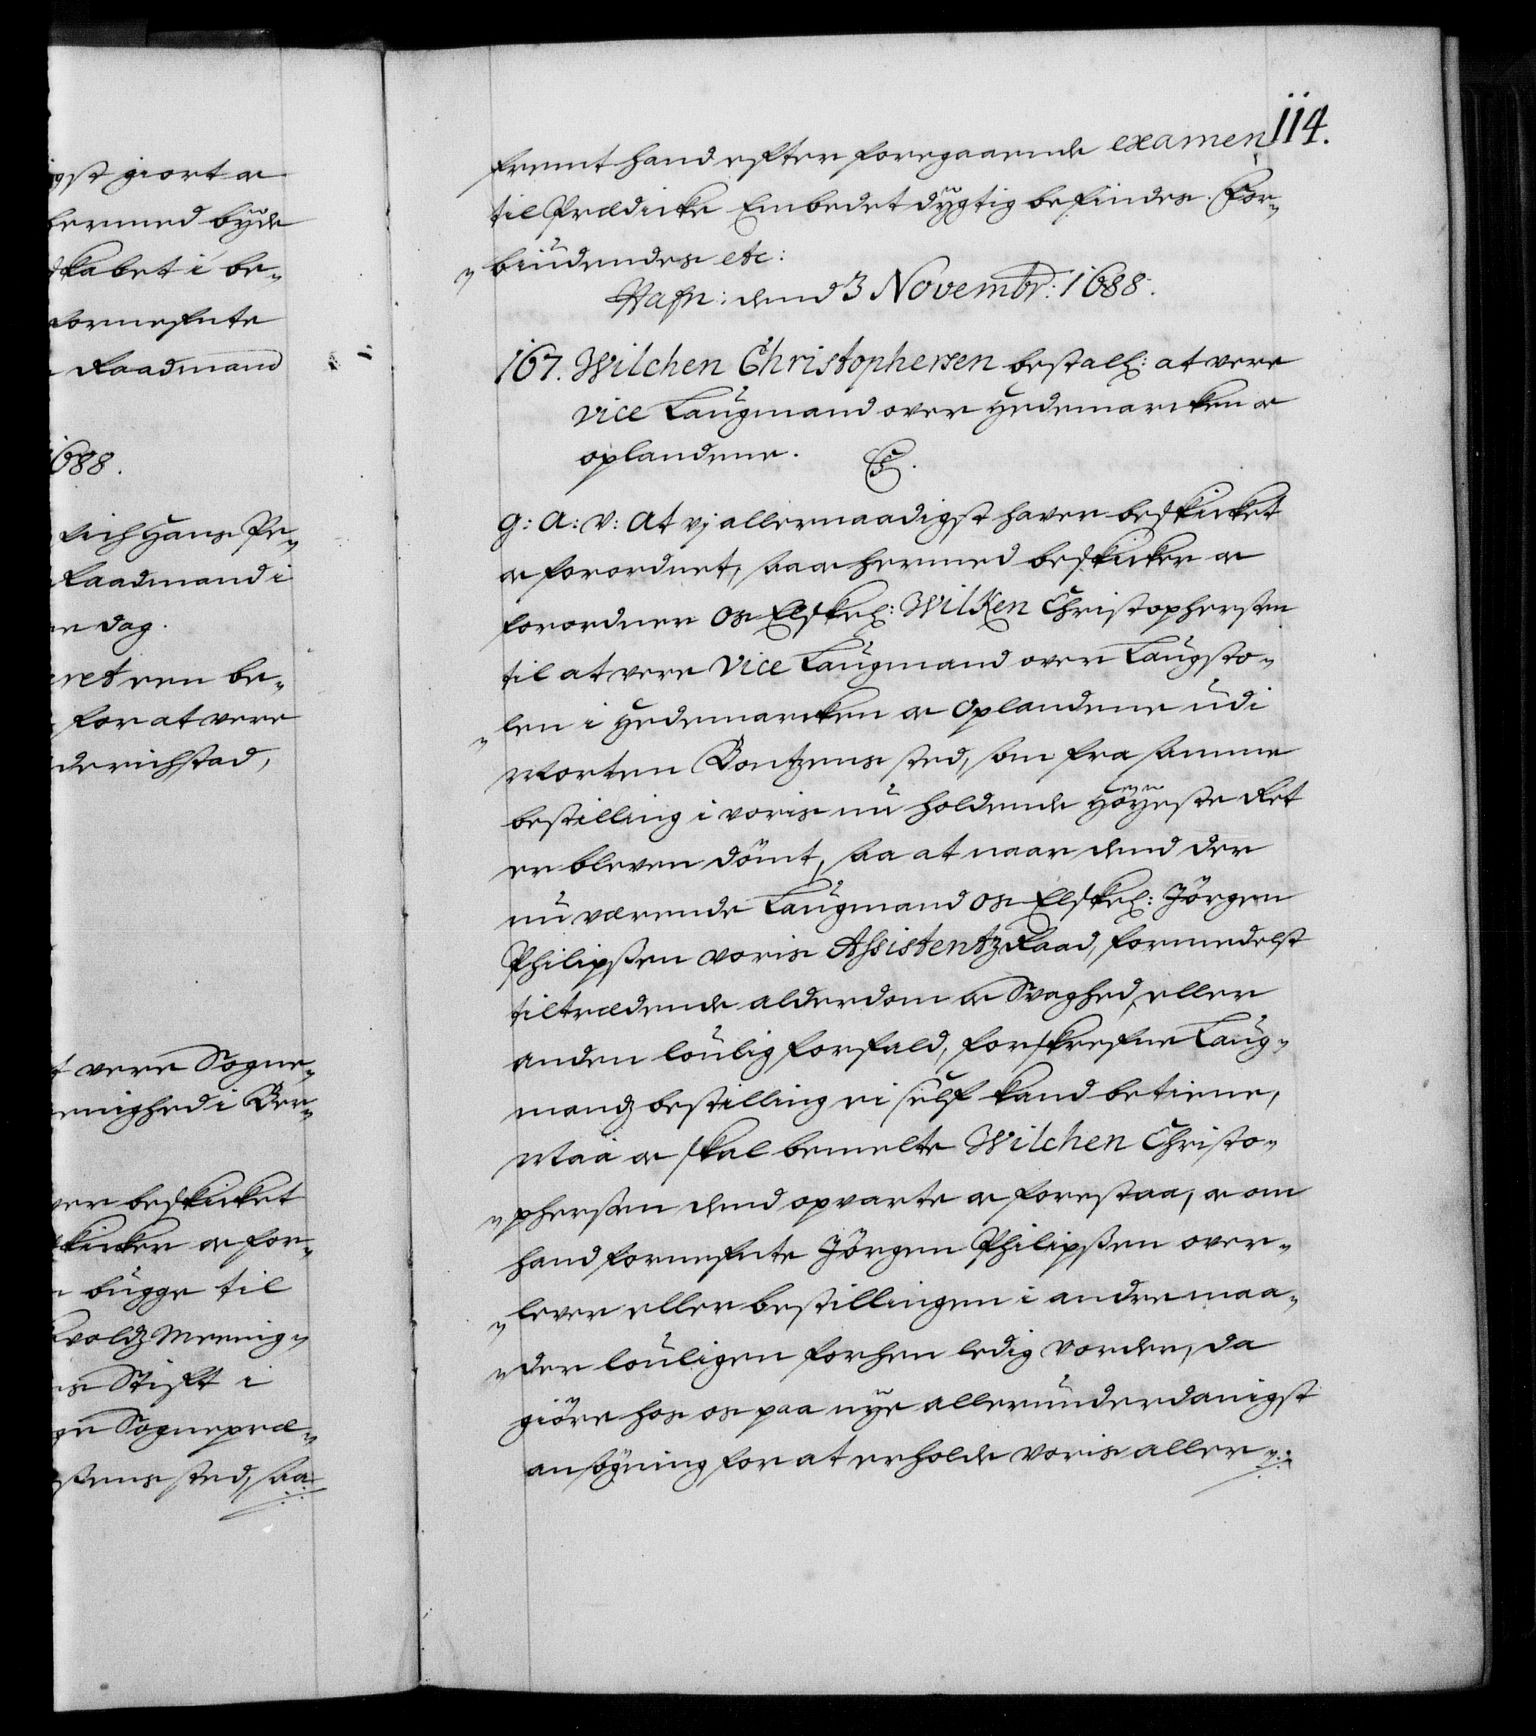 igst giort oc
hermed byde
dskabet i be„
fornefnte
Raadmand
1688.
lrich Hans Pe„
Raadmand i
en dag.
eret een be„
for at vere
derichstad,
t vere Sogne„
enighed i Ber„
ver beskicket
kicker oc for„
bygge til
voldz Menig„
ns Stift i
ge Sognepræ„
ßens sted, saa
114.
fremt hand efter foregaaende examen
til Prædicke Embedet dygtig befindes. For„
„biudendes etc:
Hafn: dend 3 Novembr: 1688.
167. Wilchen Christophersen bestall: at vere
vice Laugmand over Hedemarcken oc
oplandene. C5.
G: A: V: At vj allernaadigst haver beskicket
oc forordnet, saa oc hermed beskicker oc
forordner os Elskel: Wilken Christophersen
til at vere Vice Laugmand over Laugsto„
„len i Hedemarcken oc Oplandene udi
Morten Rontzens sted, som fra samme
bestilling i voris nu holdende Höyeste Ret
er bleven dömt, saa at naar dend der
nu værende Laugmand os Elskel: Jörgen
Philipßen voris Assistentz Raad, formedelst
tiltrædende alderdom oc Svaghed, eller
anden loulig forfald, forskrefne Laug„
mandz bestilling ei self kand betiene,
Maa oc skal bemelte Wilchen Christo„
„phersen dend opvarte oc forestaa, oc om
hand fornefnte Jörgen Philipßen over„
„lever eller bestillingen i andre maa„
„der louligen forhen ledig vorder, da
giöre hos os paa nye allerunderdanigst
ansögning for at erholde voris aller„